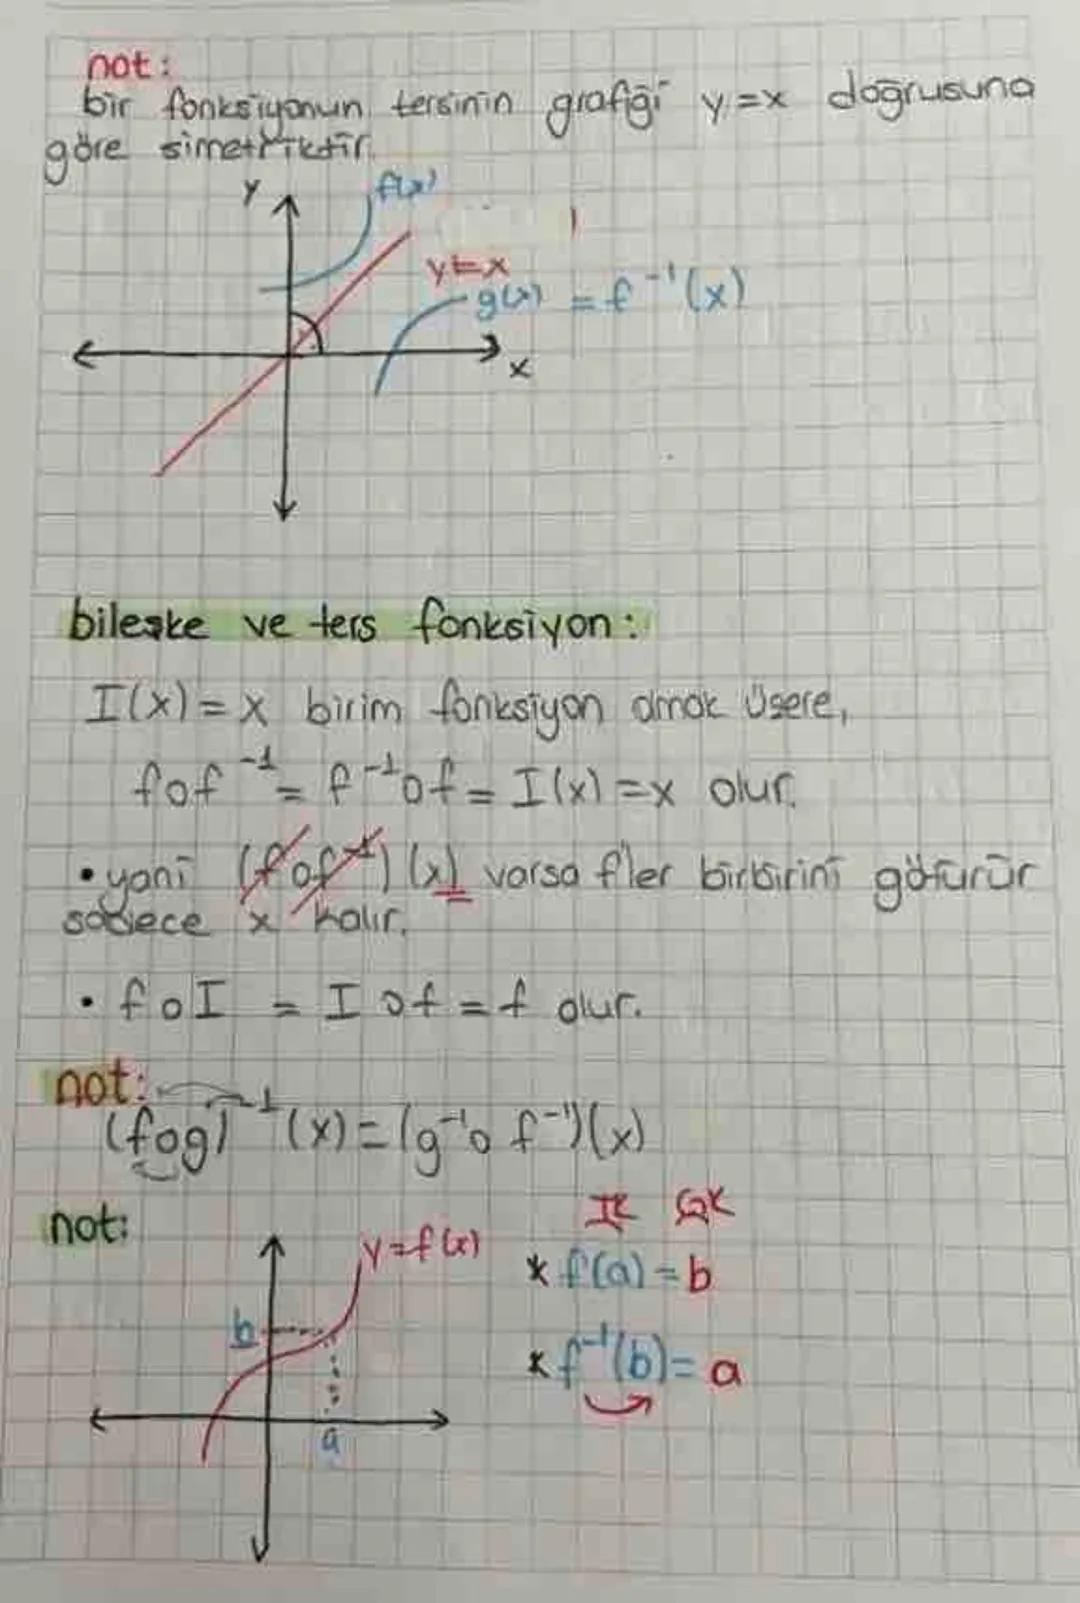 not:
bir fonksiyonun tersinin grafiği y=x doğrusuna
göre simetriktir.
y
f(x)
y=x
g(x) = f⁻¹(x)
x
bileşke ve ters fonksiyon:
I(x)=x birim fonksiyon olmak üzere,
fof⁻¹ = f⁻¹of = I(x)=x olur.
• yani (fof⁻¹)(x) varsa f'ler birbirini götürür
sadece x kalır.
• foI = Iof = f olur.
not:
(fog)⁻¹(x)=(g⁻¹o f⁻¹)(x)
not:
y=f(x)
b
a
* f(a)=b
* f⁻¹(b)=a